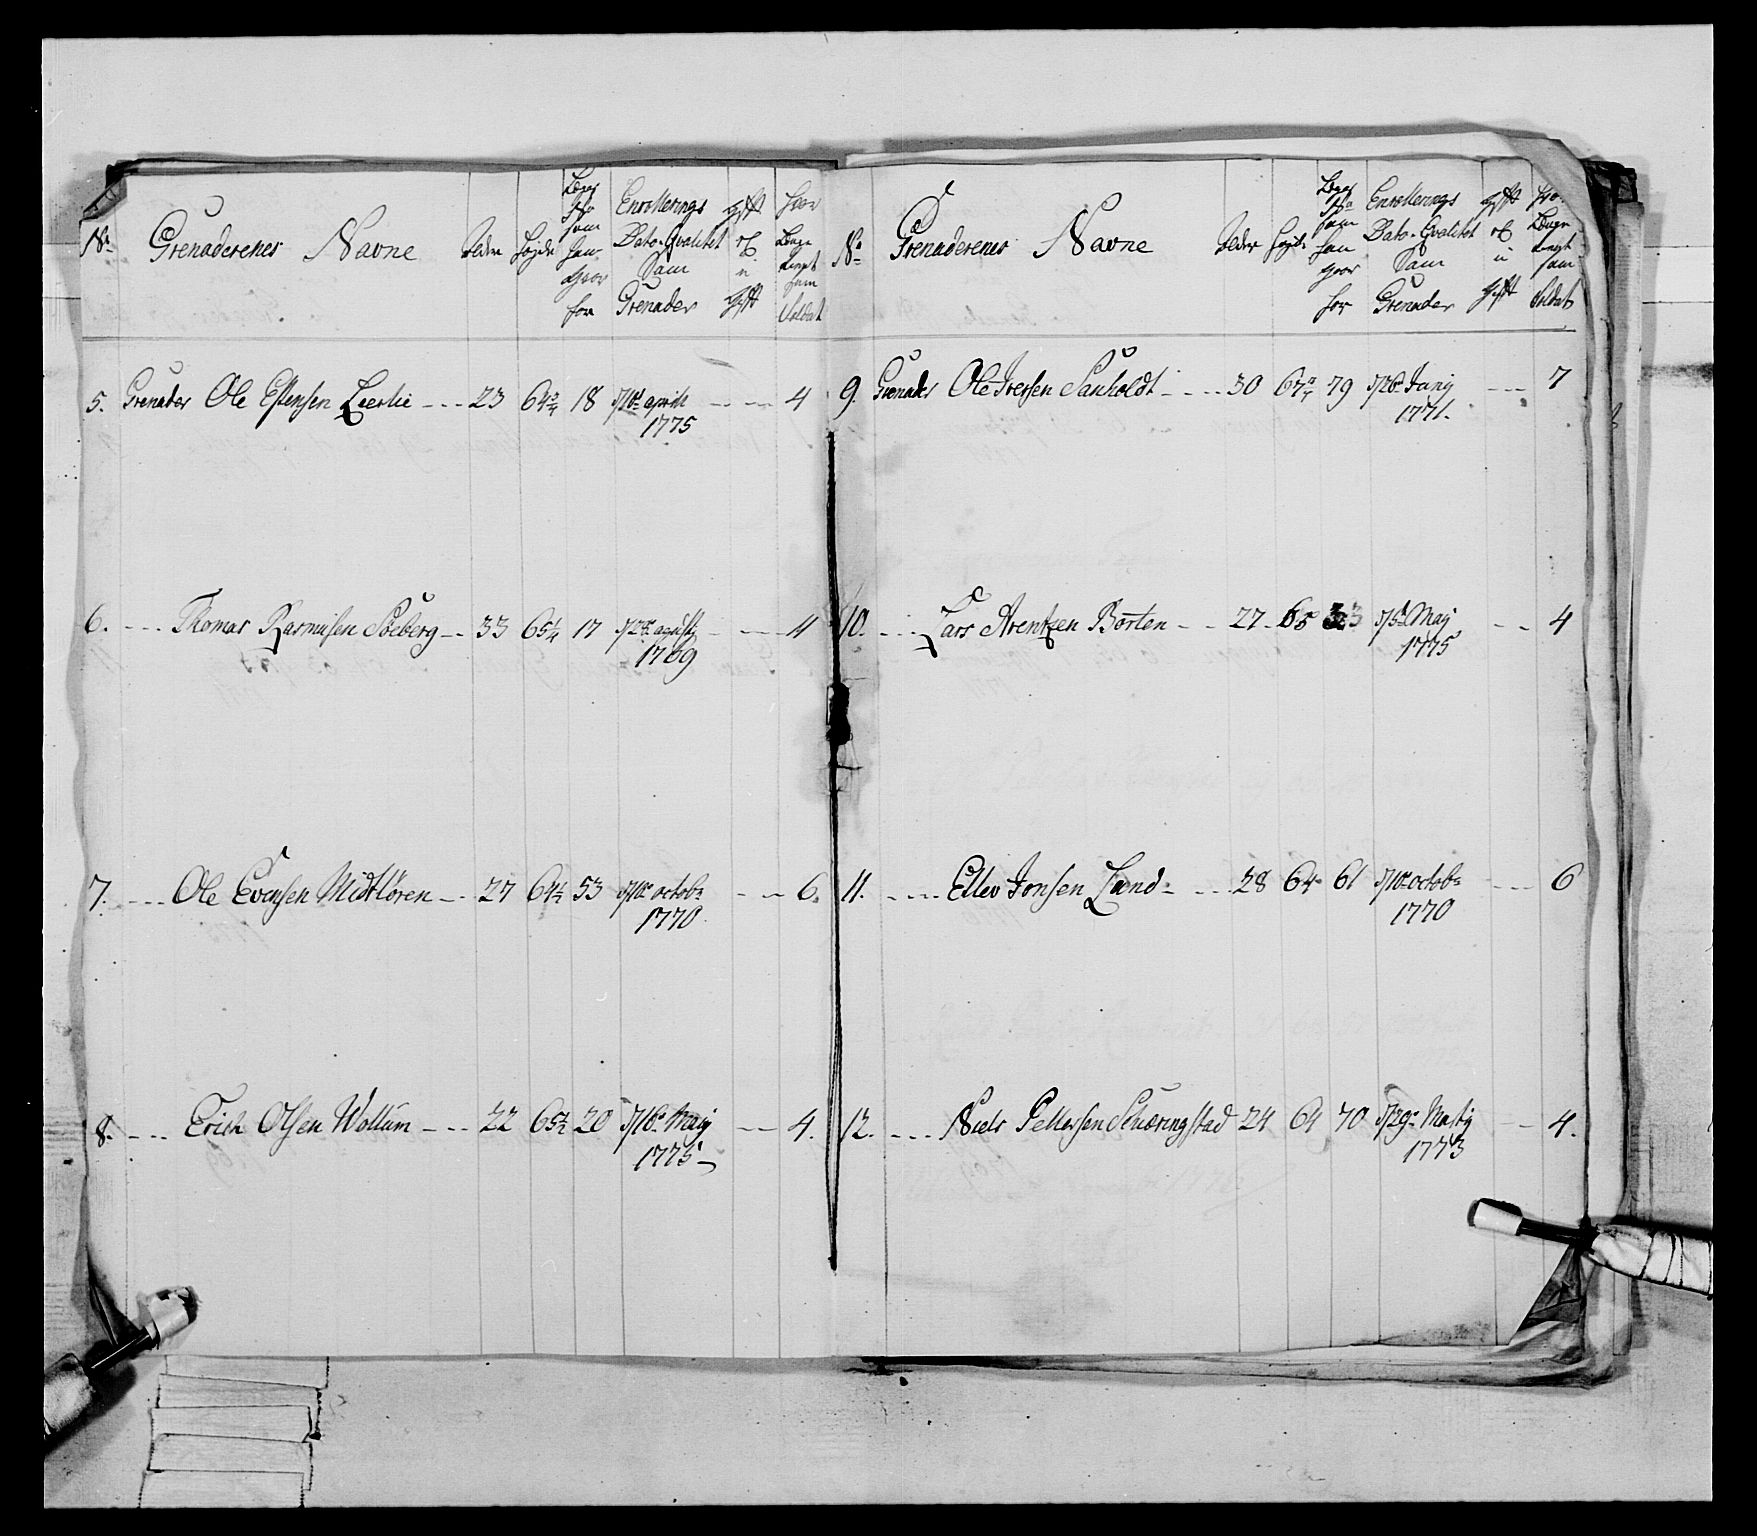 No Grenaderenes Navne Alder Højde
Lægs
No
som
han
staar
for
Enrollerings
Dato Qvalitet
Som
Grenader
Gift
og
u
Gift
Hvor
Længe
tient
som
Soldat
5. Grenader Ole Estensen Leerlie 23 64 3/4 18 d/10 april 4
1775
6. Thomas Rasmusen Söeberg 33 65 1/4 17 agusty 4
1769
7. Ole Evensen Midtlören 27 64 1/2 53 d/10 octobr 6.
1770
8. Erich Olsen Wollum 22 65 1/2 20 d/16 Maij 4.
1775
No Grenaderenes Navne Alder Højde
Lægs
No
som
han
staar
for
Enrollerings
Dato Qvalitet
Som
Grenader
Gift
og
u
Gift
Hvor
Længe
tient
som
Soldat
9. Grenader Ole Iversen Sanholdt 30 67 79 Junij 7
1771.
10. Lars Arentzen Borten 27 65 33 d/5 Maij 4
1775
11. Ellev Jonsen Lund 28 64 61 d/10 octobr 6
1770
12. Niels Pettersen Schæringstad 24 64 70 d/29 Martij 4.
1773